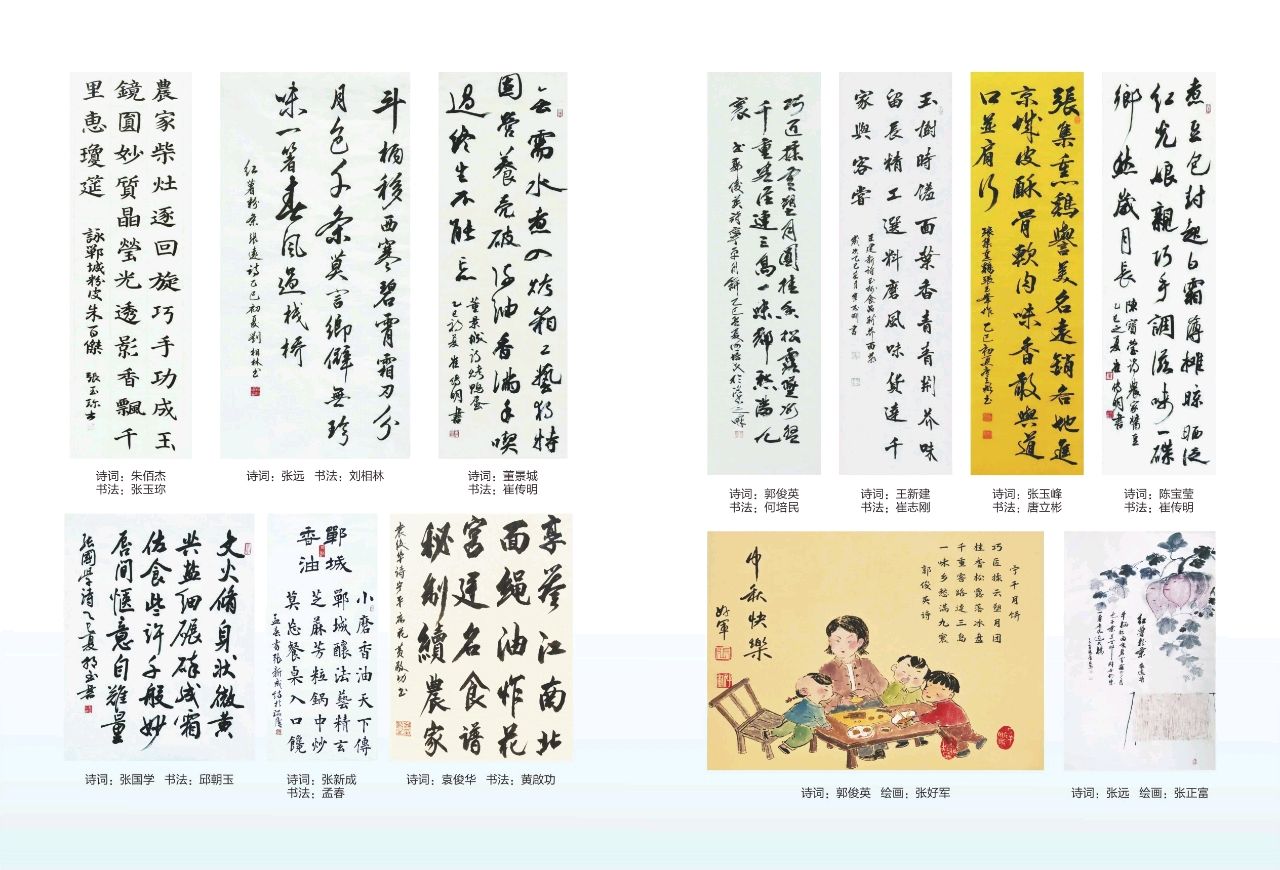 農家柴灶逐回旋巧手功成玉
鏡圓妙質晶瑩光透影香飄千
里惠瓊筵
詠鄲城粉皮朱百傑 張玉珎书
诗词：朱佰杰
书法：张玉珎
斗柄移西寒碧霄霜刀分
月色千条莫言鄉僻無珍
味一箸春風過栈桥
红薯粉条张遠诗乙巳初夏劉相林书
诗词：张远 书法：刘相林
无需水煮入烤箱工藝独特
固营養壳破汤油香满手喫
過终生不能忘
董景城诗烤鸭蛋
乙巳初夏崔传明書
诗词：董景城
书法：崔传明
文火脩身状微黄
共盐细碾碎成霜
佐食些许千般妙
唇间惬意自難量
张國学诗乙巳夏朝玉書
诗词：张国学 书法：邱朝玉
鄲城
香油
小磨香油天下傳
鄲城釀法藝精玄
芝蔴芳粒鍋中炒
莫怠餐桌入口饞
诗词：张新成
书法：孟春
享誉江南北
面绳油炸花
宫廷名食谱
秘制續農家
诗词：袁俊华 书法：黄啟功
巧匠揉雲塑月團桂香松露墜冰盤
千重客路連三島一味鄉愁滿九
寰
诗词：郭俊英
书法：何培民
玉樹時馐面葉香青青荆芥味
留長精工選料磨風味貨達千
家與客嘗
诗词：王新建
书法：崔志刚
張集熏鷄譽美名遠銷各地進
京城皮酥骨軟肉味香敢與道
口並肩行
诗词：张玉峰
书法：唐立彬
煮豆包封起白霜薄摊晾晒泛
红光娘親巧手調滋味一碟
鄉愁歲月長
陳寶莹诗農家酱豆
乙巳之夏崔传明書
诗词：陈宝莹
书法：崔传明
宁平月饼
巧匠揉云塑月团
桂香松露落冰盘
千重客路连三岛
一味乡愁满九寰
郭俊英诗
仲秋快樂
好軍
诗词：郭俊英 绘画：张好军
红薯粉条
诗词：张远 绘画：张正富